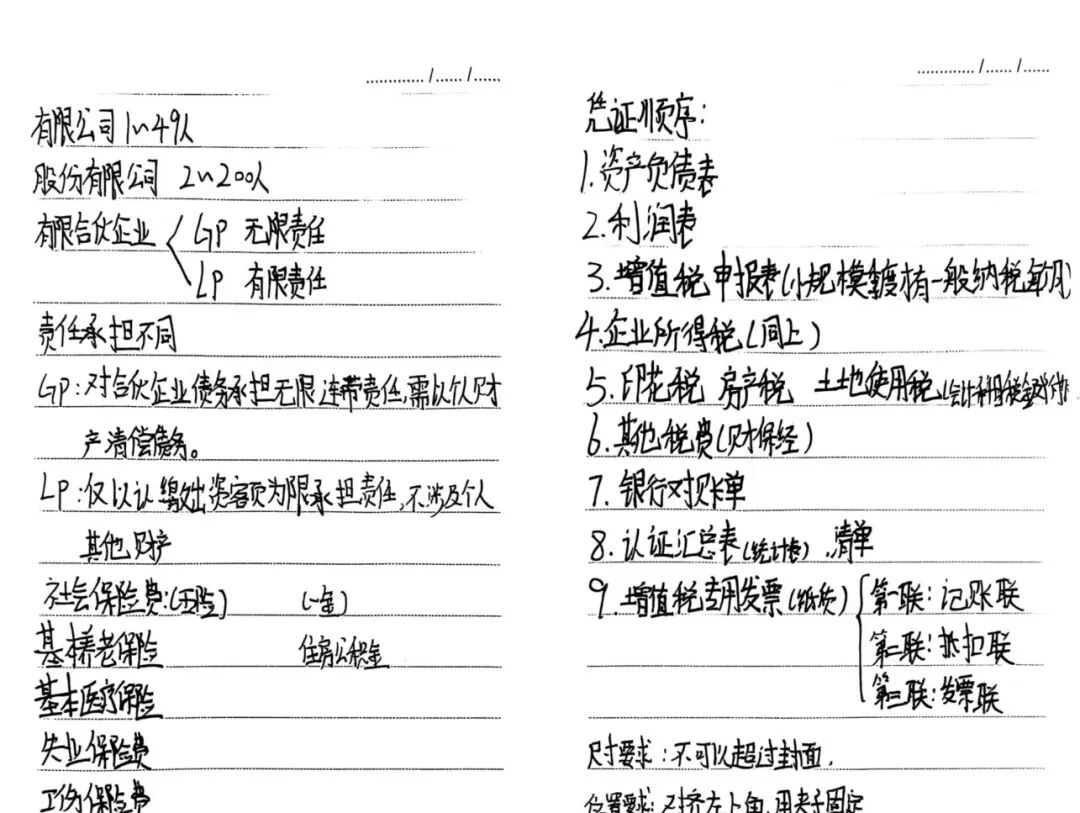 ............/....../......
有限公司 1~49人
股份有限公司 2~200人
有限合伙企业 GP 无限责任
LP 有限责任
责任承担不同
GP:对合伙企业债务承担无限连带责任,需以个人财
产清偿债务。
LP:仅以认缴出资额为限承担责任,不涉及个人
其他财产
社会保险费:(五险) (一金)
基本养老保险 住房公积金
基本医疗保险
失业保险费
工伤保险费
............/....../......
凭证顺序:
1.资产负债表
2.利润表
3.增值税申报表(小规模季度 一般纳税
4.企业所得税(同上)
5.印花税 房产税 土地使用税
6.其他税费(财保经)
7.银行对账单
8.认证汇总表(统计表),清单
9.增值税专用发票(纸质) 第一联:记账联
第二联:抵扣联
第三联:发票联
尺寸要求:不可以超过封面.
位置要求:对齐左上角,用夹子固定